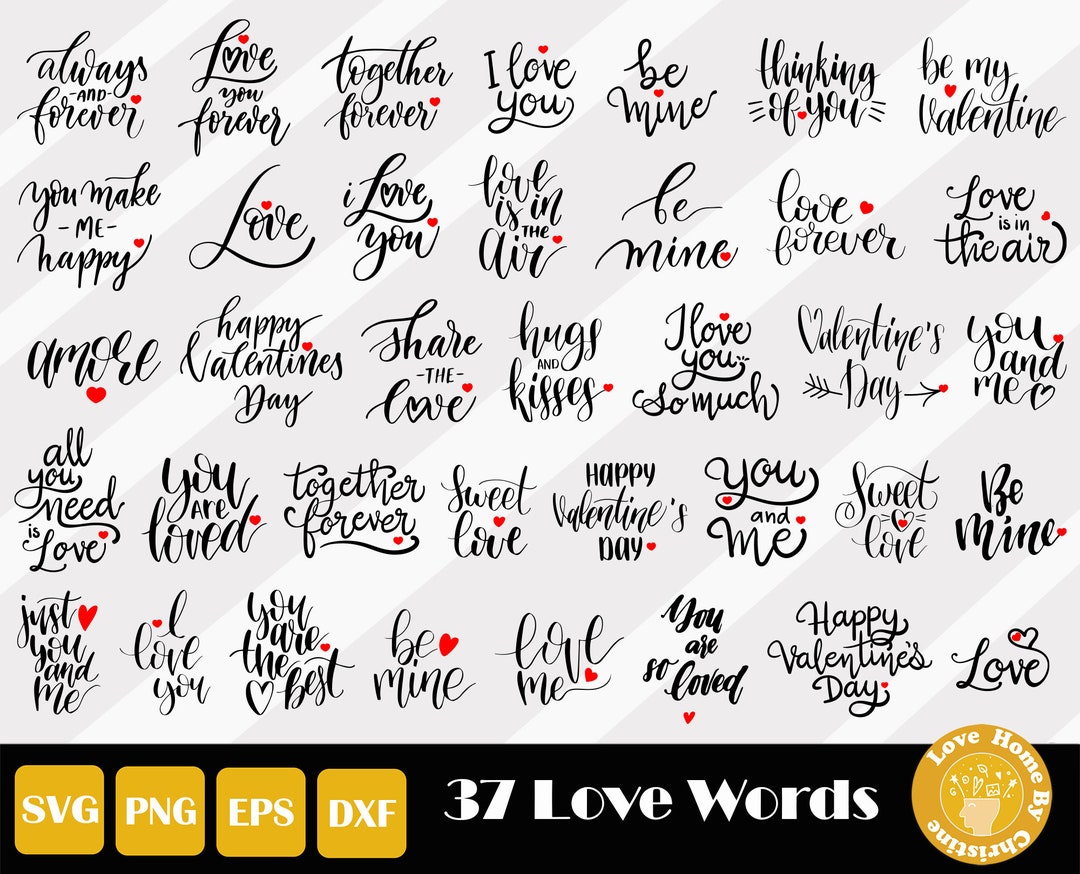 always
-AND-
forever
Love
you
forever
together
forever
I love
you
be
mine
thinking
of you
be my
Valentine
you make
-ME-
happy
Love
i Love
you
love
is in
THE
air
be
mine
love
forever
Love
is in
the air
amore
happy
Valentines
Day
share
-THE-
love
hugs
AND
kisses
I love
you
so much
Valentine's
Day
you
and
me
all
you
need
is
Love
you
ARE
loved
together
forever
Sweet
love
HAPPY
Valentine's
DAY
you
and
Me
Sweet
love
Be
mine
just
you
and
me
I
love
you
you
are
the
best
be
mine
love
me
You
are
so loved
Happy
Valentine's
Day
Love
SVG PNG EPS DXF
37 Love Words
Love Home By Christine